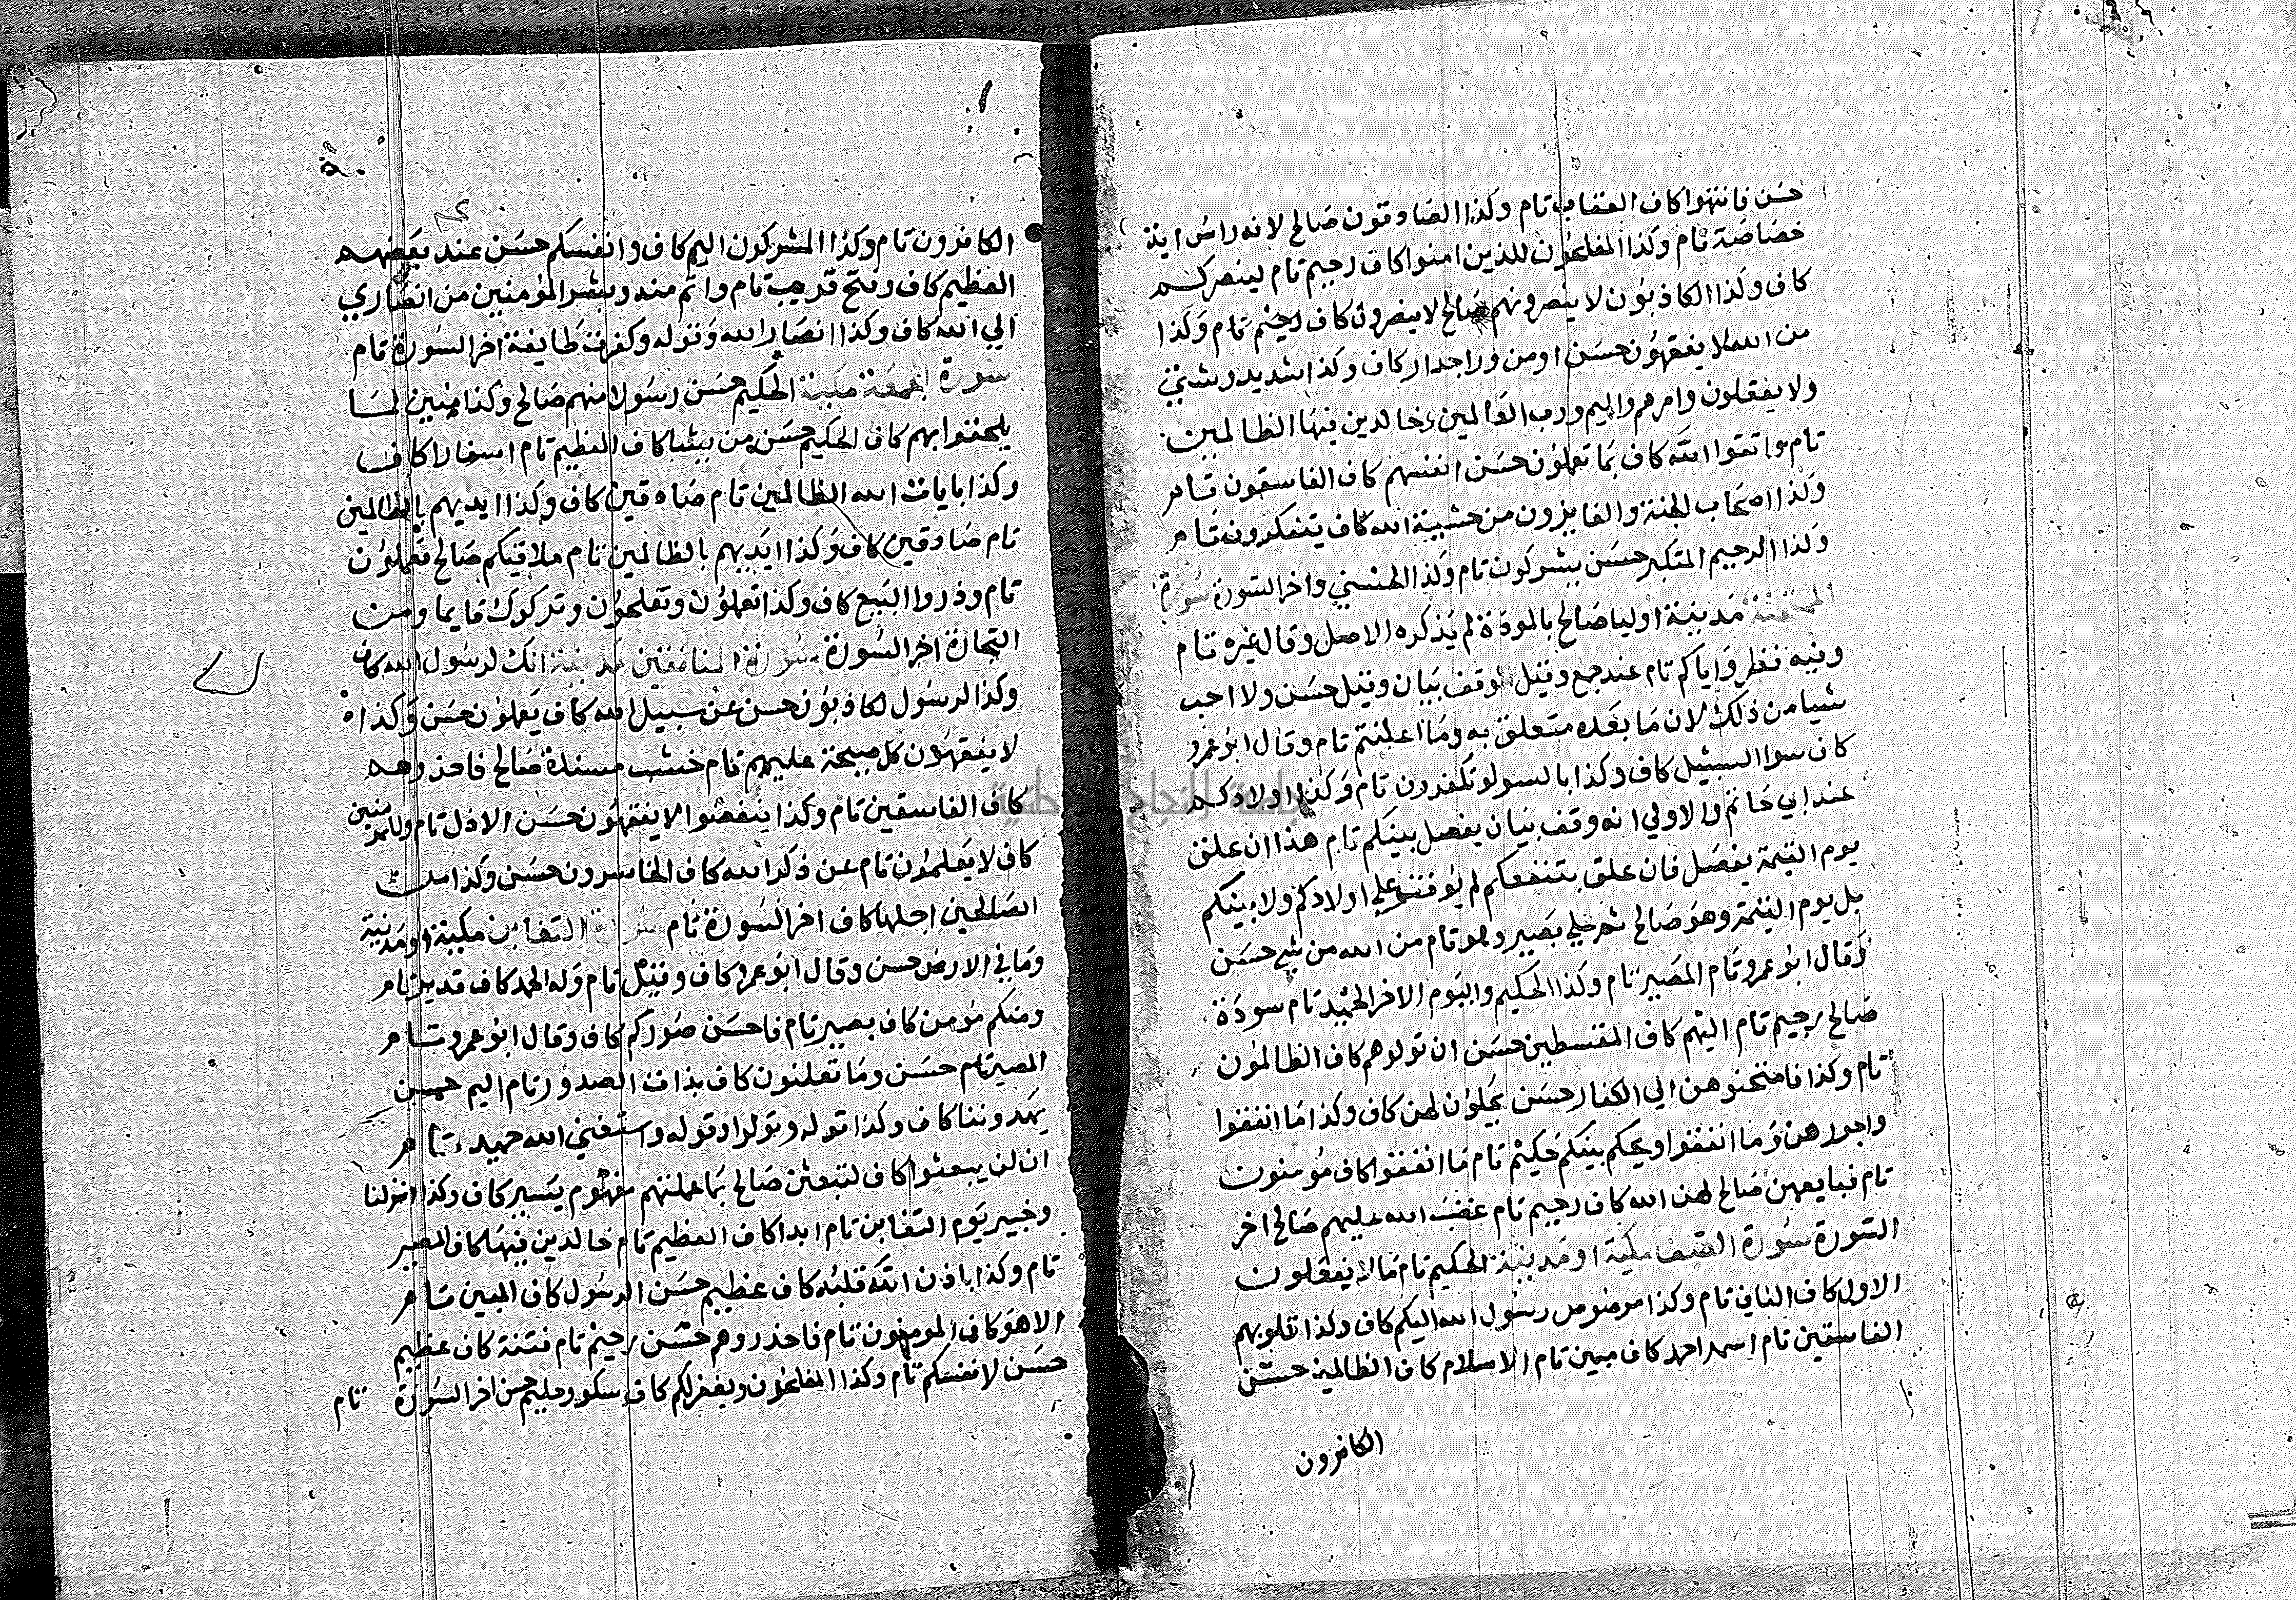 حسن فانتهوا كاف العقاب تام وكذا الصادقون صالح لانه راس اية
خصاصة تام وكذا المفلحون للذين امنوا كاف رحيم تام لينصركم
كاف وكذا الكاذبون لا ينصرونهم صالح لا ينصرون كاف تام وكذا
من الله لا يفقهون حسن او من ورا جدار كاف وكذا شديد وشتى
ولا يعقلون وامرهم واليم ورب العالمين وخالدين فيها الظالمين
تام واتقوا الله كاف بما تعملون حسن انفسهم كاف الفاسقون تام
وكذا اصحاب الجنة والفايزون من خشية الله كاف يتفكرون تام
وكذا الرحيم المتكبر حسن يشركون تام وكذا الحسنى واخر السورة سورة
الممتحنة مدينية اوليا صالح بالمودة لم يذكره الاصل وقال غيره تام
وفيه نظر واياكم تام عند جمع وقيل الوقف بيان وقيل حسن ولا احب
شيا من ذلك لان ما بعده متعلق به وما اعلنتم تام وقال ابو عمرو
كاف سوا السبيل كاف وكذا بالسو لو تكفرون تام وكذا اولادكم
عند ابي حاتم والاولي انه وقف بيان يفصل بينكم تام هذا ان علق
يوم القيمة بيفصل فان علق بتنفعكم لم يوقف علي اولادكم ولا بينكم
بل يوم القيمة وهو صالح ثم علي بصير وهو تام من الله من شي حسن
وقال ابو عمرو تام المصير تام وكذا الحكيم واليوم الاخر الحميد تام مودة
صالح رحيم تام اليهم كاف المقسطين حسن ان تولوهم كاف الظالمون
تام وكذا فامتحنوهن الي الكفار حسن يحلون لهن كاف وكذا ما انفقوا
واجورهن وما انفقوا ويحكم بينكم حكيم تام ما انفقوا كاف مومنون
تام فبايعهن صالح لهن الله كاف رحيم تام غضب الله عليهم صالح اخر
السورة سورة الصف مكية او مدينية الحكيم تام مالا يفعلون
الاول كاف الثاني تام وكذا مرصوص رسول الله اليكم كاف وكذا قلوبهم
الفاسقين تام اسمه احمد كاف مبين تام الاسلام كاف الظالمين حسن
الكافرون
الكافرون تام وكذا المشركون اليم كاف وانفسكم حسن عند بعضهم
العظيم كاف وفتح قريب تام واتم منه وبشر المومنين من انصاري
الي الله كاف وكذا انصار الله وقوله وكفرت طايفة اخر السورة تام
سورة الجمعة مكية الحكيم حسن رسولا منهم صالح وكذا مبين لما
يلحقوا بهم كاف الحكيم حسن من يشا كاف العظيم تام اسفارا كاف
وكذا بايات الله الظالمين تام صادقين كاف وكذا ايديهم بالظالمين
تام صادقين كاف وكذا ايديهم بالظالمين تام ملاقيكم صالح تعملون
تام وذروا البيع كاف وكذا تعلمون وتفلحون وتركوك قايما ومن
التجارة اخر السورة سورة المنافقين مدينية انك لرسول الله كاف
وكذا لرسول لكاذبون حسن عن سبيل الله كاف يعملون حسن وكذا
لا يفقهون كل صيحة عليهم تام خشب مسندة صالح فاحذرهم
كاف الفاسقين تام وكذا ينفضوا لا يفقهون حسن الاذل تام وللمومنين
كاف لا يعلمون تام عن ذكر الله كاف الخاسرون حسن وكذا من
الصالحين اجلها كاف اخر السورة تام سورة التغابن مكية او مدنية
وما في الارض حسن وقال ابو عمرو كاف وقيل تام وله الحمد كاف قدير تام
ومنكم مومن كاف بصير تام فاحسن صوركم كاف وقال ابو عمرو تام
المصير تام حسن وما تعلنون كاف بذات الصدور تام اليم حسن
يهدوننا كاف وكذا قوله وتولوا وقوله واستغني الله حميد تام
ان لن يبعثوا كاف لتبعثن صالح بما عملتم مفهوم يسير كاف وكذا انزلنا
وخبير يوم التغابن تام ابدا كاف العظيم تام خالدين فيها كاف المصير
تام وكذا باذن الله قلبه كاف عظيم حسن الرسول كاف المبين تام
الا هو كاف المومنون تام فاحذروهم حسن رحيم تام فتنة كاف عظيم
حسن لانفسكم تام وكذا المفلحون ويغفر لكم كاف شكور حليم حسن اخر السورة تام